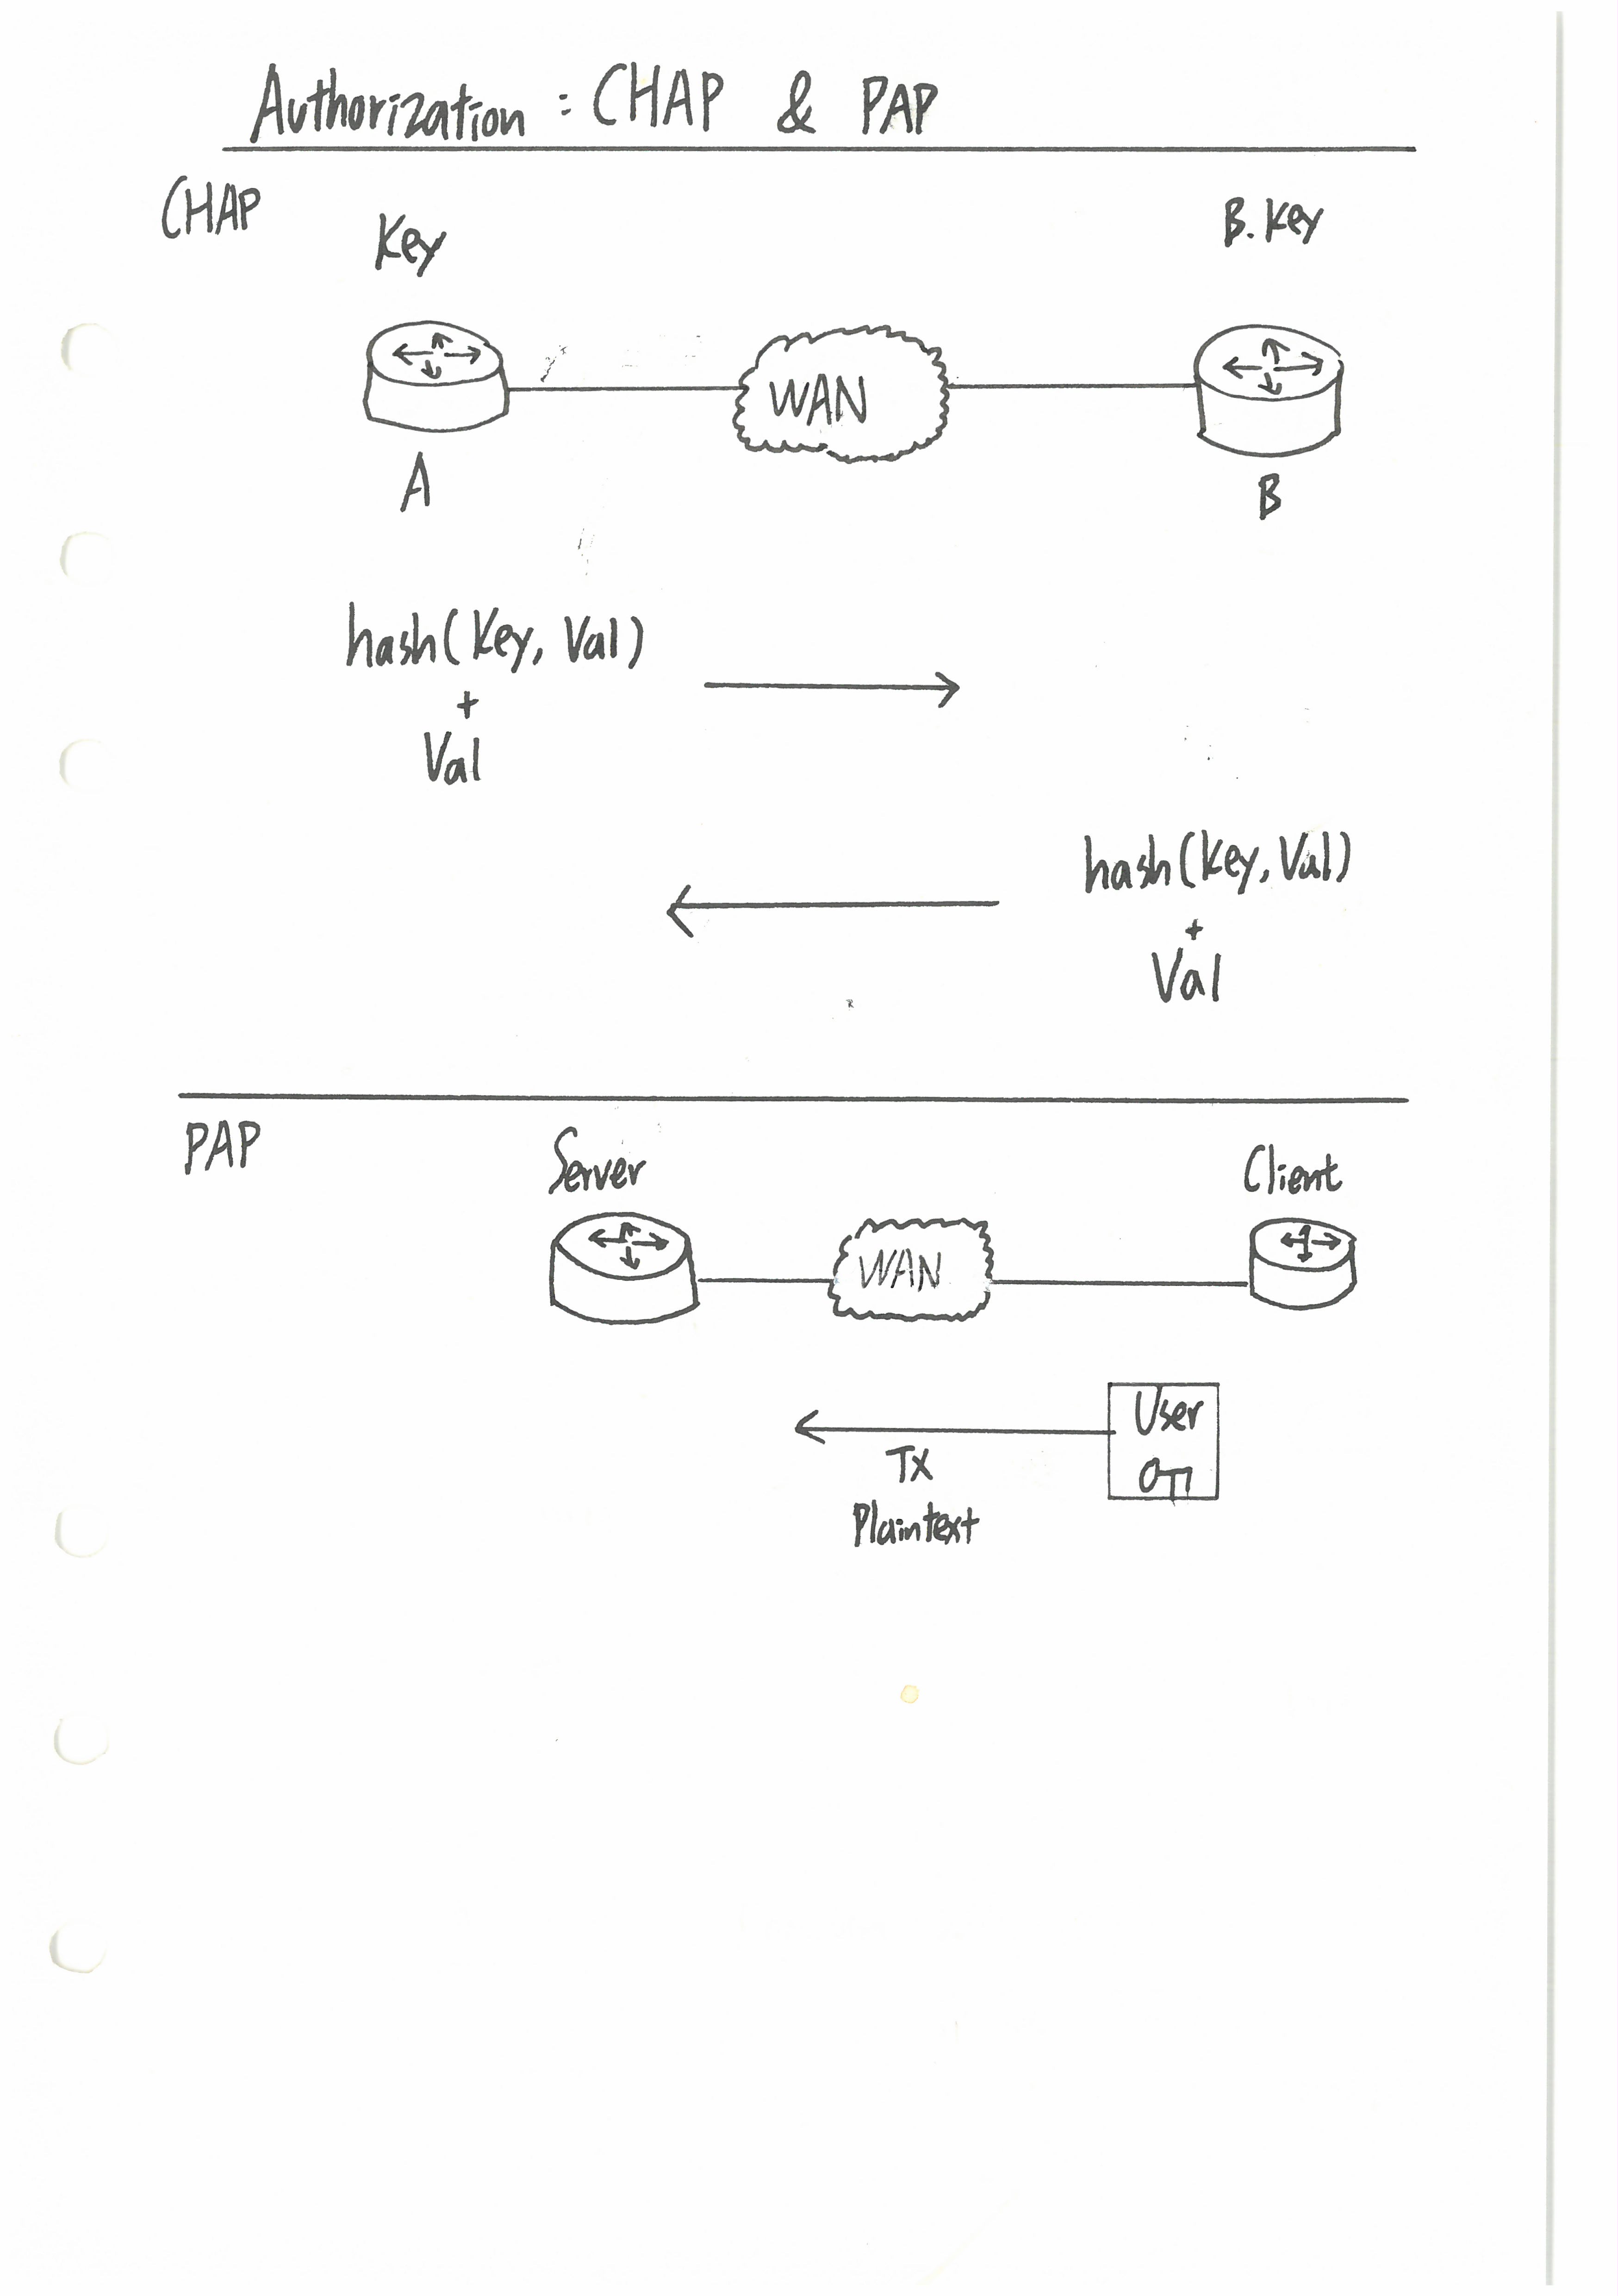 Authorization : CHAP & PAP
CHAP
Key
B. Key
WAN
A
B
hash(Key, Val)
+
Val
hash(Key, Val)
+
Val
PAP
Server
Client
WAN
User
TX
Plaintext